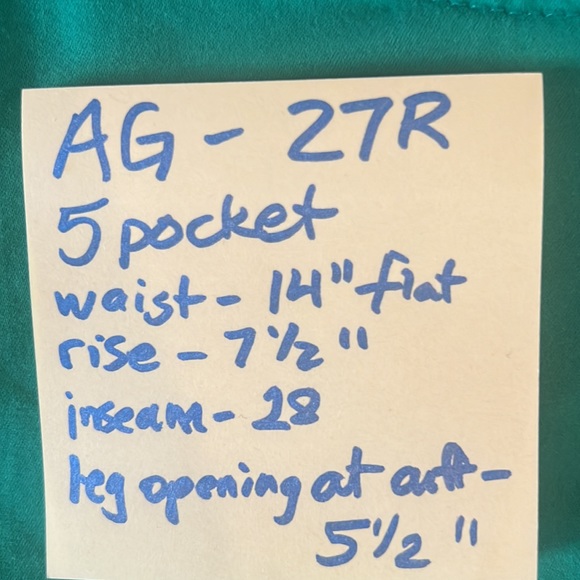 AG - 27R
5 pocket
waist - 14" flat
rise - 7 1/2"
inseam - 28
leg opening at
5 1/2"